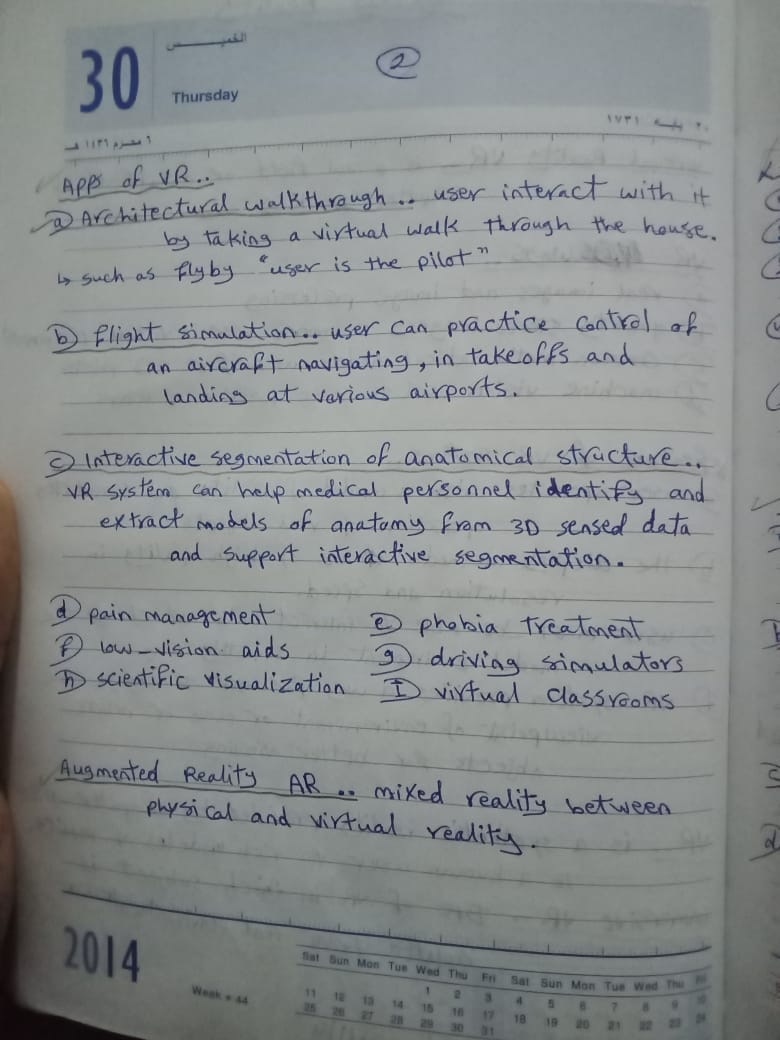 30
الخميس
Thursday
2
٦ محرم ١٤٣٦ هـ
٢٠ بابه ١٧٣١
Apps of VR..
a) Architectural walkthrough .. user interact with it
by taking a virtual walk through the house.
↳ such as flyby "user is the pilot"
b) flight simulation .. user can practice control of
an aircraft navigating, in takeoffs and
landing at various airports.
c) Interactive segmentation of anatomical structure ..
VR system can help medical personnel identify and
extract models of anatomy from 3D sensed data
and support interactive segmentation.
d) pain management e) phobia treatment
f) low-vision aids g) driving simulators
h) scientific visualization I) virtual classrooms
Augmented Reality AR .. mixed reality between
physical and virtual reality.
2014
Week • 44
Sat Sun Mon Tue Wed Thu Fri Sat Sun Mon Tue Wed Thu Fri
1 2 3 4 5 6 7 8 9 10
11 12 13 14 15 16 17 18 19 20 21 22 23 24
25 26 27 28 29 30 31